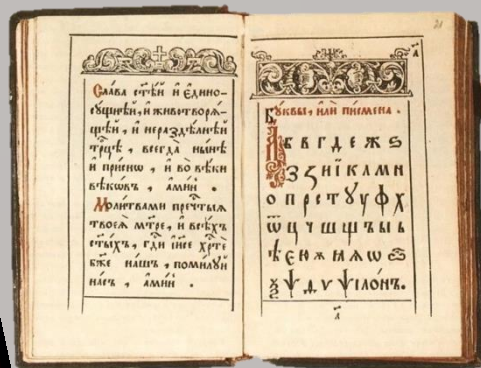 Сла́ва ст҃ѣй и҆ є҆дино-
сꙋ́щнѣй, и҆ животворѧ́-
щей, и҆ нераздѣ́лнѣй
трⷪ҇цѣ, всегда̀ ны́нѣ
и҆ при́снѡ, и҆ во̀ вѣ́ки
вѣкѡ́въ, а҆ми́нь.
Моли́твами пречⷭ҇тыѧ
твоеѧ̀ мт҃ре, и҆ всѣ́хъ
ст҃ы́хъ, гдⷭ҇и і҆и҃се хрⷭ҇те
бж҃е на́шъ, поми́лꙋй
на́съ, а҆ми́нь.
21
Бꙋ́квы, и҆лѝ писмена̀.
А Б В Г Д Е Ж Ѕ
З И Ї К Л М Н
О П Р С Т Ꙋ У Ф Х
Ѿ Ц Ч Ш Щ Ъ Ы Ь
Ѣ Є Ю Ѫ Ѧ Ѡ
Ѯ Ѱ Ѳ Ѵ ѱїло́нъ.